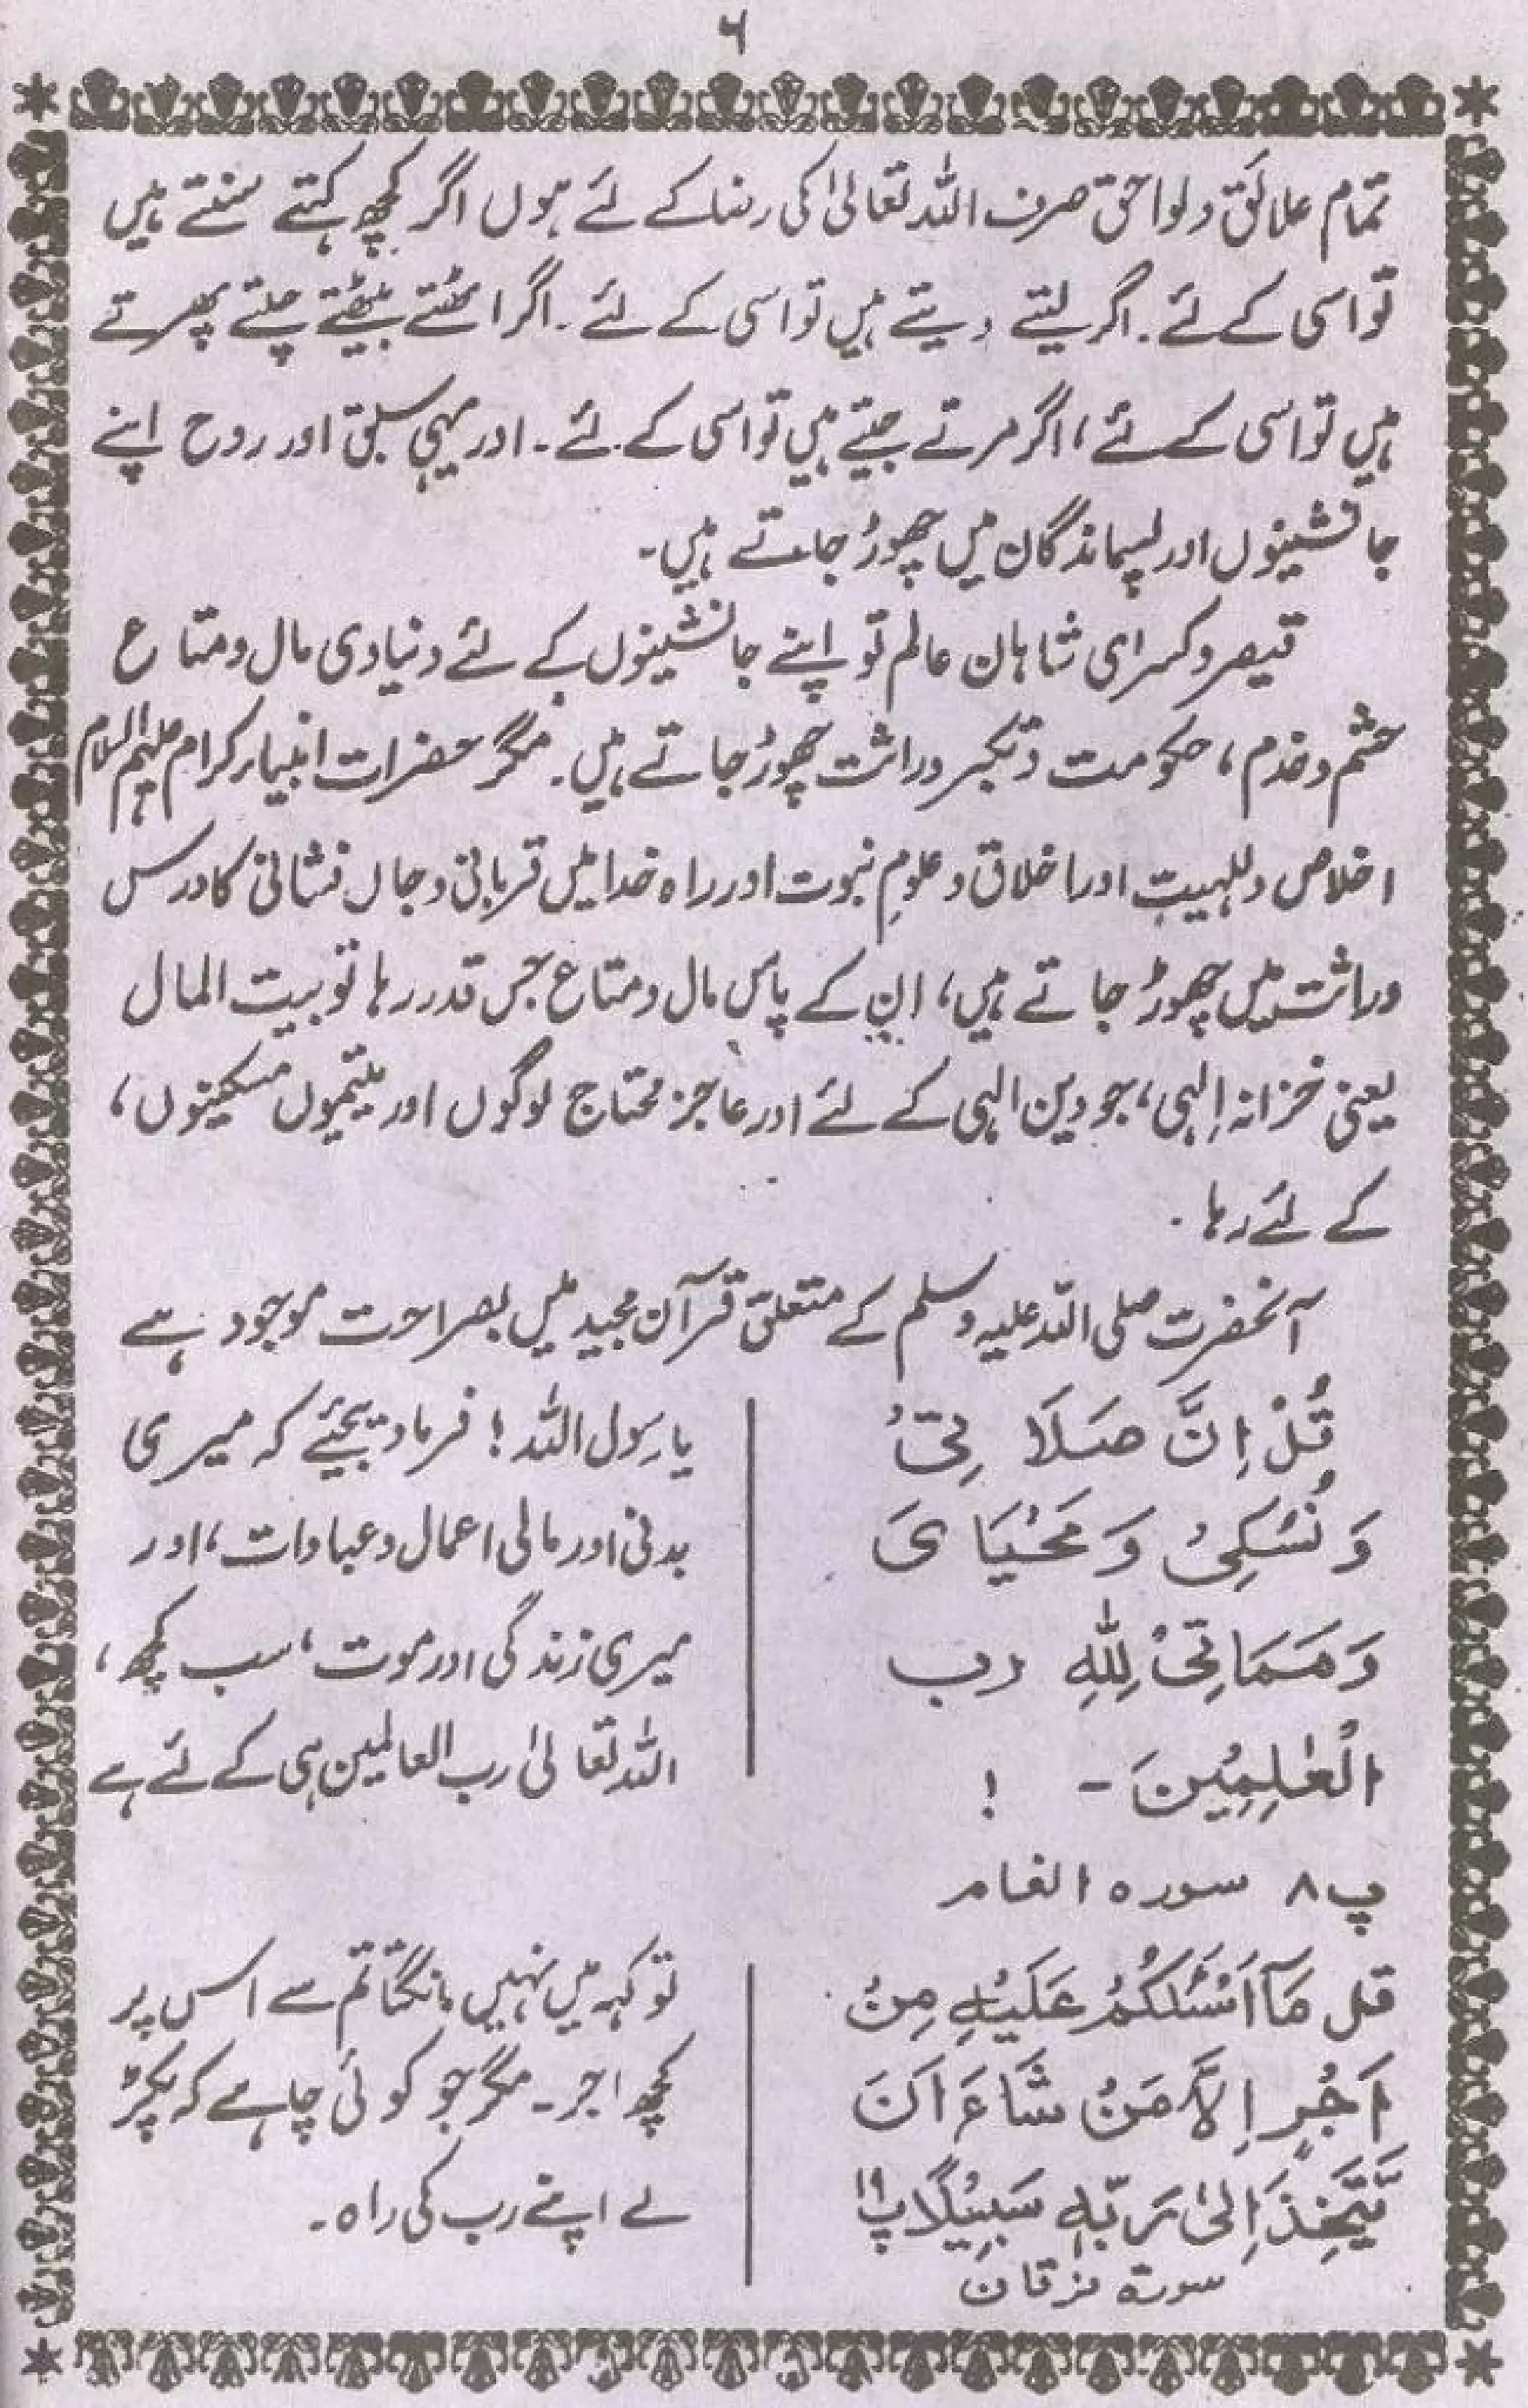 ۶
تمام علائق ولواحق صرف اللہ تعالیٰ کی رضا کے لئے ہوں اگر کچھ کہتے سنتے ہیں
تو اسی کے لئے۔ اگر لیتے دیتے ہیں تو اسی کے لئے۔ اگر اٹھتے بیٹھتے چلتے پھرتے
ہیں تو اسی کے لئے، اگر مرتے جیتے ہیں تو اسی کے لئے۔ اور یہی سبق اور روح اپنے
جانشینوں اور پسماندگان میں چھوڑ جاتے ہیں۔
قیصر و کسرای شاہان عالم تو اپنے جانشینوں کے لئے دنیاوی مال و متاع
حشم و خدم، حکومت و تکبر وراثت چھوڑ جاتے ہیں۔ مگر حضرات انبیار کرام علیہم السلام
اخلاص و للہیت اور اخلاق و علومِ نبوت اور راہ خدا میں قربانی و جاں فشانی کا درس
وراثت میں چھوڑ جاتے ہیں، ان کے پاس مال و متاع جس قدر رہا تو بیت المال
یعنی خزانہ اِلٰہی، جو دین الہی کے لئے اور عاجز محتاج لوگوں اور یتیموں مسکینوں،
کے لئے رہا۔
آنحضرت صلی اللہ علیہ وسلم کے متعلق قرآن مجید میں بصراحت موجود ہے
قُلْ اِنَّ صَلَا تِیْ
وَ نُسُکِیْ وَ مَحْیَا یَ
وَ مَمَاتِیْ لِلّٰهِ رب
الْعٰلَمِیْنَ - !
پ ۸ سورہ انعام
یا رسول اللہ! فرما دیجئیے کہ میری
بدنی اور مالی اعمال و عبادات، اور
میری زندگی اور موت، سب کچھ،
اللہ تعالیٰ رب العالمین ہی کے لئے ہے
قل مَآ اَسْئَلُکُمْ عَلَیْهِ مِنْ
اَجْرٍ اِلاَّ مَنْ شَاءَ اَنَ
یَّتَّخِذَ اِلیٰ رَبِّهٖ سَبِیْلًا پ ۱۹
سورة فرقان
تو کہہ میں نہیں مانگتا تم سے اس پر
کچھ اجر۔ مگر جو کوئی چاہے کہ پکڑ
لے اپنے رب کی راہ۔